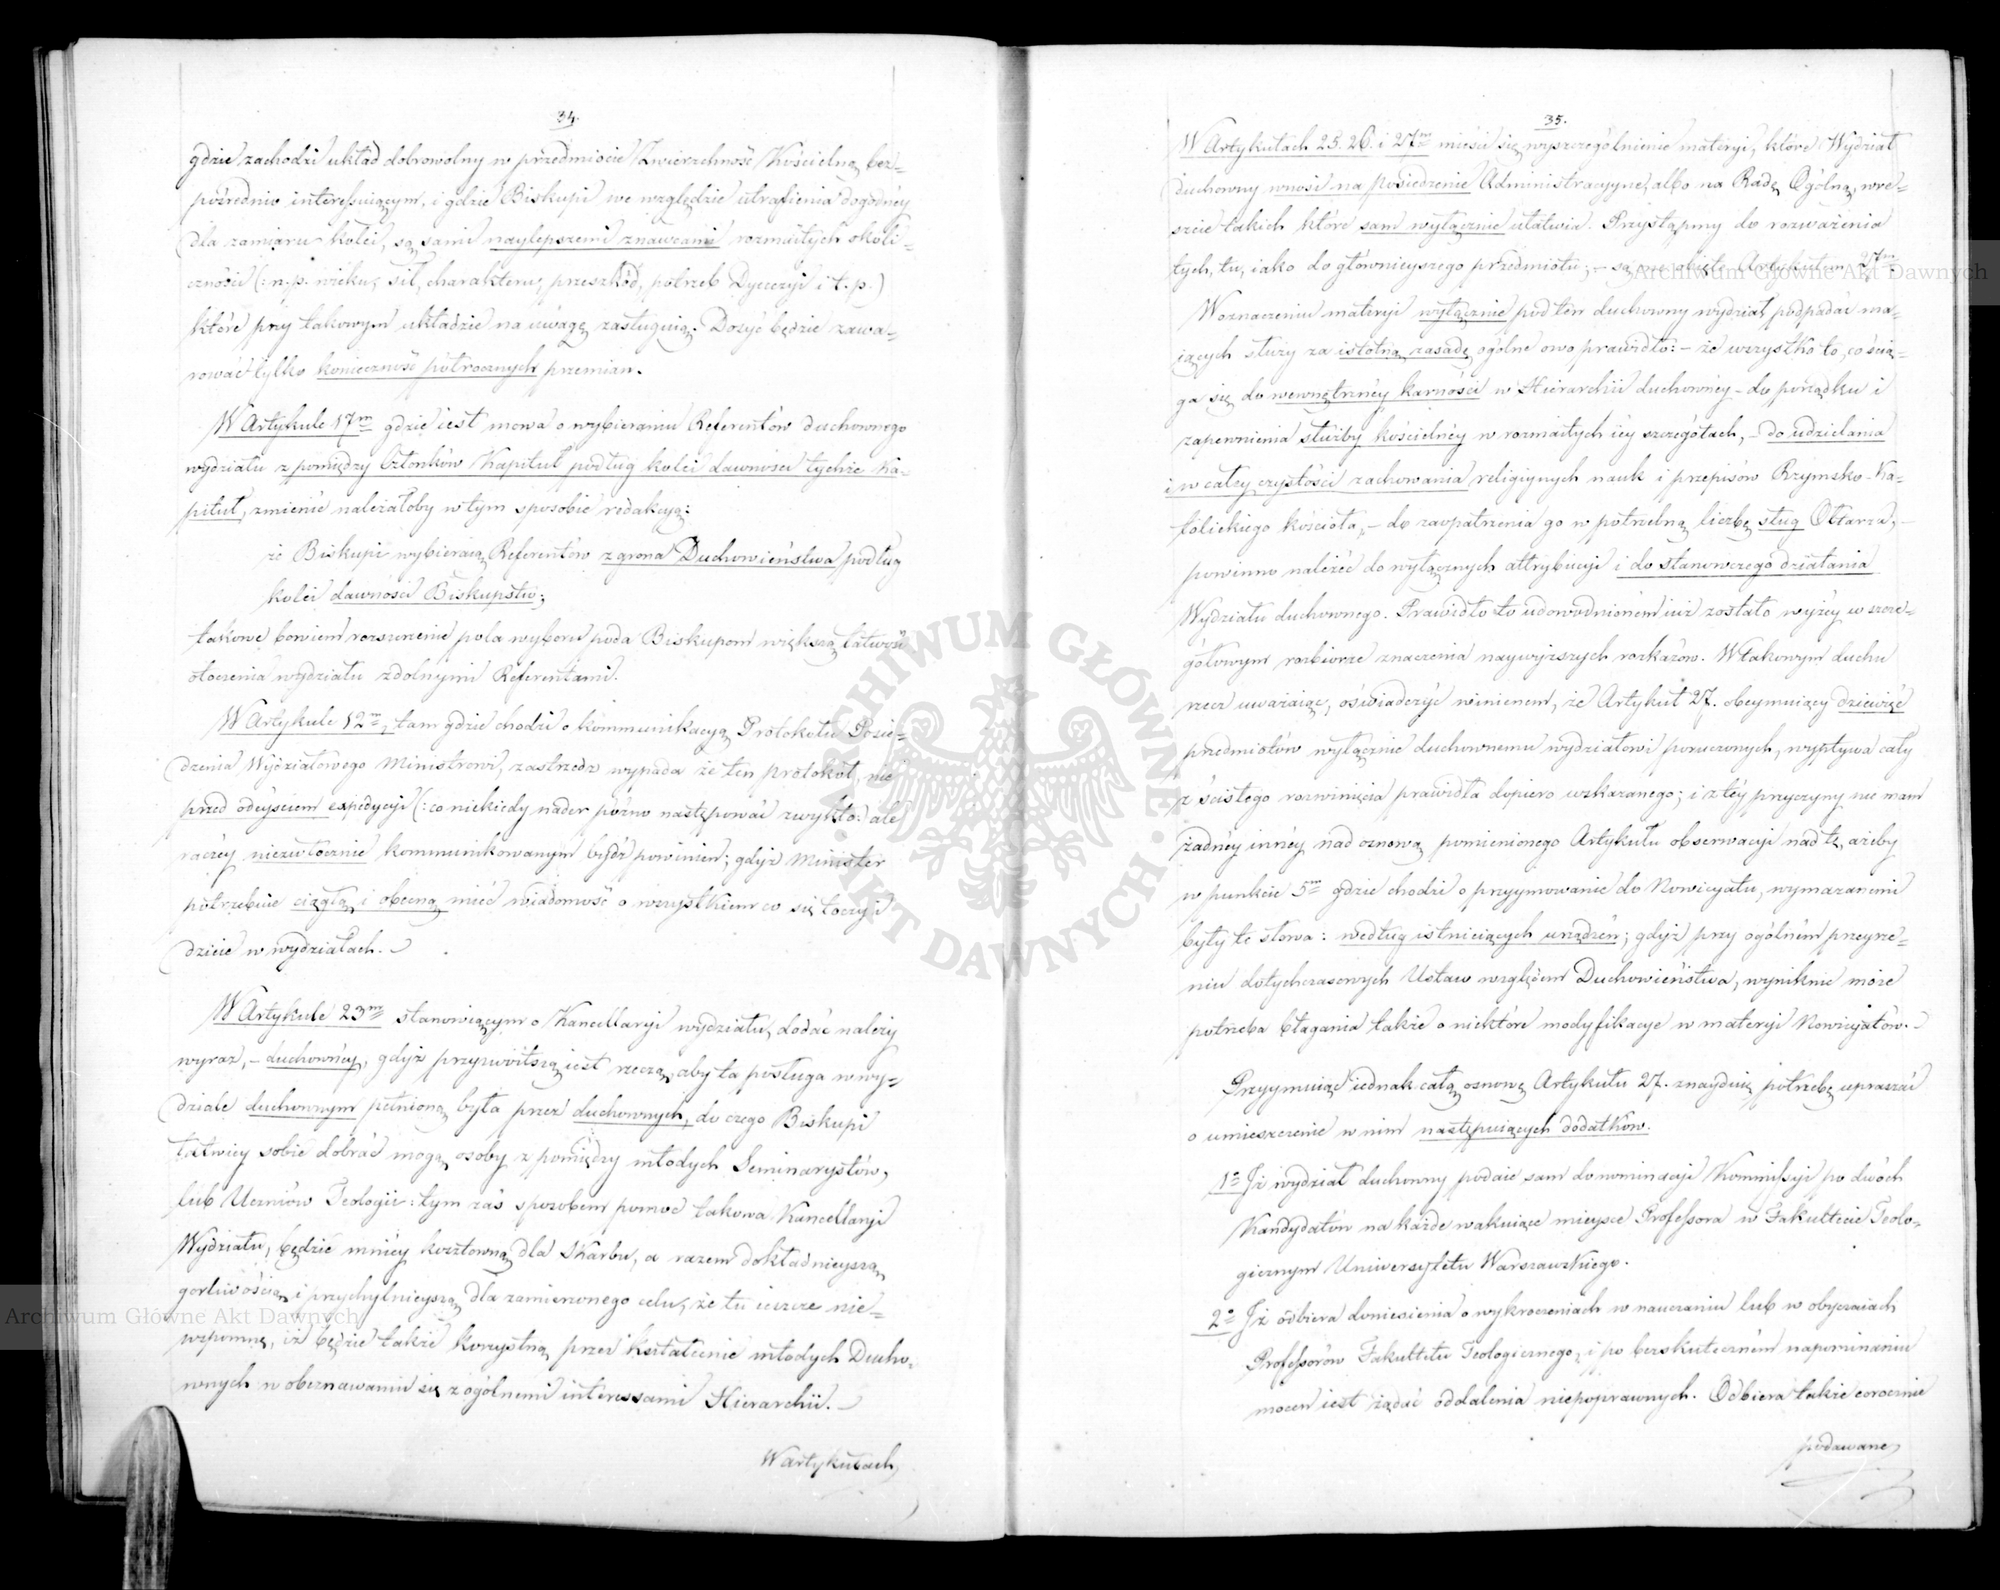 34.
gdzie zachodzi układ dobrowolny w przedmiocie Zwierzchność Kościelną bez-
pośrednio interessuiącym, i gdzie Biskupi we względzie utrafienia dogodnéy
dla zamiaru kolei, są sami naylepszemi znawcami rozmaitych okoli-
czności (: n. p. wieku, sił, charakteru, przeszkód, potrzeb Dyecezyi i t. p.)
które przy takowym układzie na uwagę zasługuią. Dosyć będzie zawa-
rować tylko konieczność półrocznych przemian.
W Artykule 17m gdzie iest mowa o wybieraniu Referentów duchownego
wydziału z pomiędzy Członków Kapituł podług kolei dawności tychże Ka-
pituł, zmienić należałoby w tym sposobie redakcyą:
że Biskupi wybieraią Referentów z grona Duchowieństwa podług
kolei dawności Biskupstw;
takowe bowiem rozszerzenie pola wyboru poda Biskupom większą łatwość
otoczenia wydziału zdolnymi Referentami.
W Artykule 12m, tam gdzie chodzi o kommunikacyą Protokółu Posie-
dzenia Wydziałowego Ministrowi, zastrzedz wypada że ten protokół, nie
przed odeyściem expedycyi (: co niekiedy nader późno następować zwykło :) ale
raczéy niezwłocznie kommunikowanym bydź powinien; gdyż Minister
potrzebuie ciągłą i obecną mieć wiadomość o wszystkiem co się toczy i
dzieie w wydziałach.
W Artykule 23m stanowiącym o Kancellaryi wydziału, dodać należy
wyraz, – duchownéy, gdyż przyzwoitszą iest rzeczą, aby ta posługa w wy-
dziale duchownym pełnioną była przez duchownych, do czego Biskupi
łatwiey sobie dobrać mogą osoby z pomiędzy młodych Seminarystów,
lub Uczniów Teologii: tym zaś sposobem pomoc takowa Kancellaryi
Wydziału, będzie mniéy kosztowną dla Skarbu, a razem dokładnieyszą
gorliwością i przychylnieyszą dla zamierzonego celu, że tu ieszcze nie-
wspomnę, iż będzie także korzystną przez kształcenie młodych Ducho-
wnych w obeznawaniu się z ogólnemi interessami Hierarchii. –
W artykułach
35.
W Artykułach 25. 26. i 27m mieści się wyszczególnienie materyi, które Wydział
duchowny wnosi na posiedzenie Administracyyne, albo na Radę Ogólną, wre-
szcie takich które sam wyłącznie ułatwia. Przystąpmy do rozważenia
tych, tu, iako do głównieyszego przedmiotu; – są one obięte Artykułem 27m
W oznaczeniu materyi wyłącznie pod ten duchowny wydział podpadać ma-
iących służy za istotną zasadę ogólne owo prawidło: – że wszystko to, co ścią-
ga się do wewnętrznéy karności w Hierarchii duchownéy – do porządku i
zapewnienia służby kościelnéy w rozmaitych iéy szczegółach, – do udzielania
i w całéy czystości zachowania religiynych nauk i przepisów Rzymsko-Ka-
tolickiego kościoła, – do zaopatrzenia go w potrzebną liczbę sług Ołtarza, –
powinno należéć do wyłącznych attrybucyi i do stanowczego działania
Wydziału duchownego. Prawidło to udowodnioném iuż zostało wyżéy w szcze-
gółowym rozbiorze znaczenia naywyższych rozkazów. W takowym duchu
rzecz uważaiąc, oświadczyć winienem, że Artykuł 27. obeymuiący dziewięć
przedmiotów wyłącznie duchownemu wydziałowi poruczonych, wypływa cały
z ścisłego rozwinięcia prawidła dopiero wskazanego; i z téy przyczyny nie mam
żadnéy innéy nad osnową pomienionego Artykułu obserwacyi nad tę, ażeby
w punkcie 5m gdzie chodzi o przyymowanie do Nowicyatu, wymazanemi
były te słowa: według istnieiących urządzeń; gdyż przy ogólném przeyrze-
niu dotychczasowych Ustaw względem Duchowieństwa, wyniknie może
potrzeba błagania także o niektóre modyfikacye w materyi Nowicyatów. –
Przyymuiąc iednak całą osnowę Artykułu 27. znayduię potrzebę upraszać
o umieszczenie w nim następuiących dodatków.
1o Iż wydział duchowny podaie sam do nominacyi Kommissyi po dwóch
Kandydatów na każde wakuiące mieysce Professora w Fakultecie Teolo-
gicznym Uniwersytetu Warszawskiego.
2o Iż odbiera doniesienia o wykroczeniach w nauczaniu lub w obyczaiach
Professorów Fakultetu Teologicznego, i po bezskuteczném napominaniu
mocen iest żądać oddalenia niepoprawnych. Odbiera także corocznie
podawane
ARCHIWUM GŁÓWNE AKT DAWNYCH
Archiwum Główne Akt Dawnych
Archiwum Główne Akt Dawnych